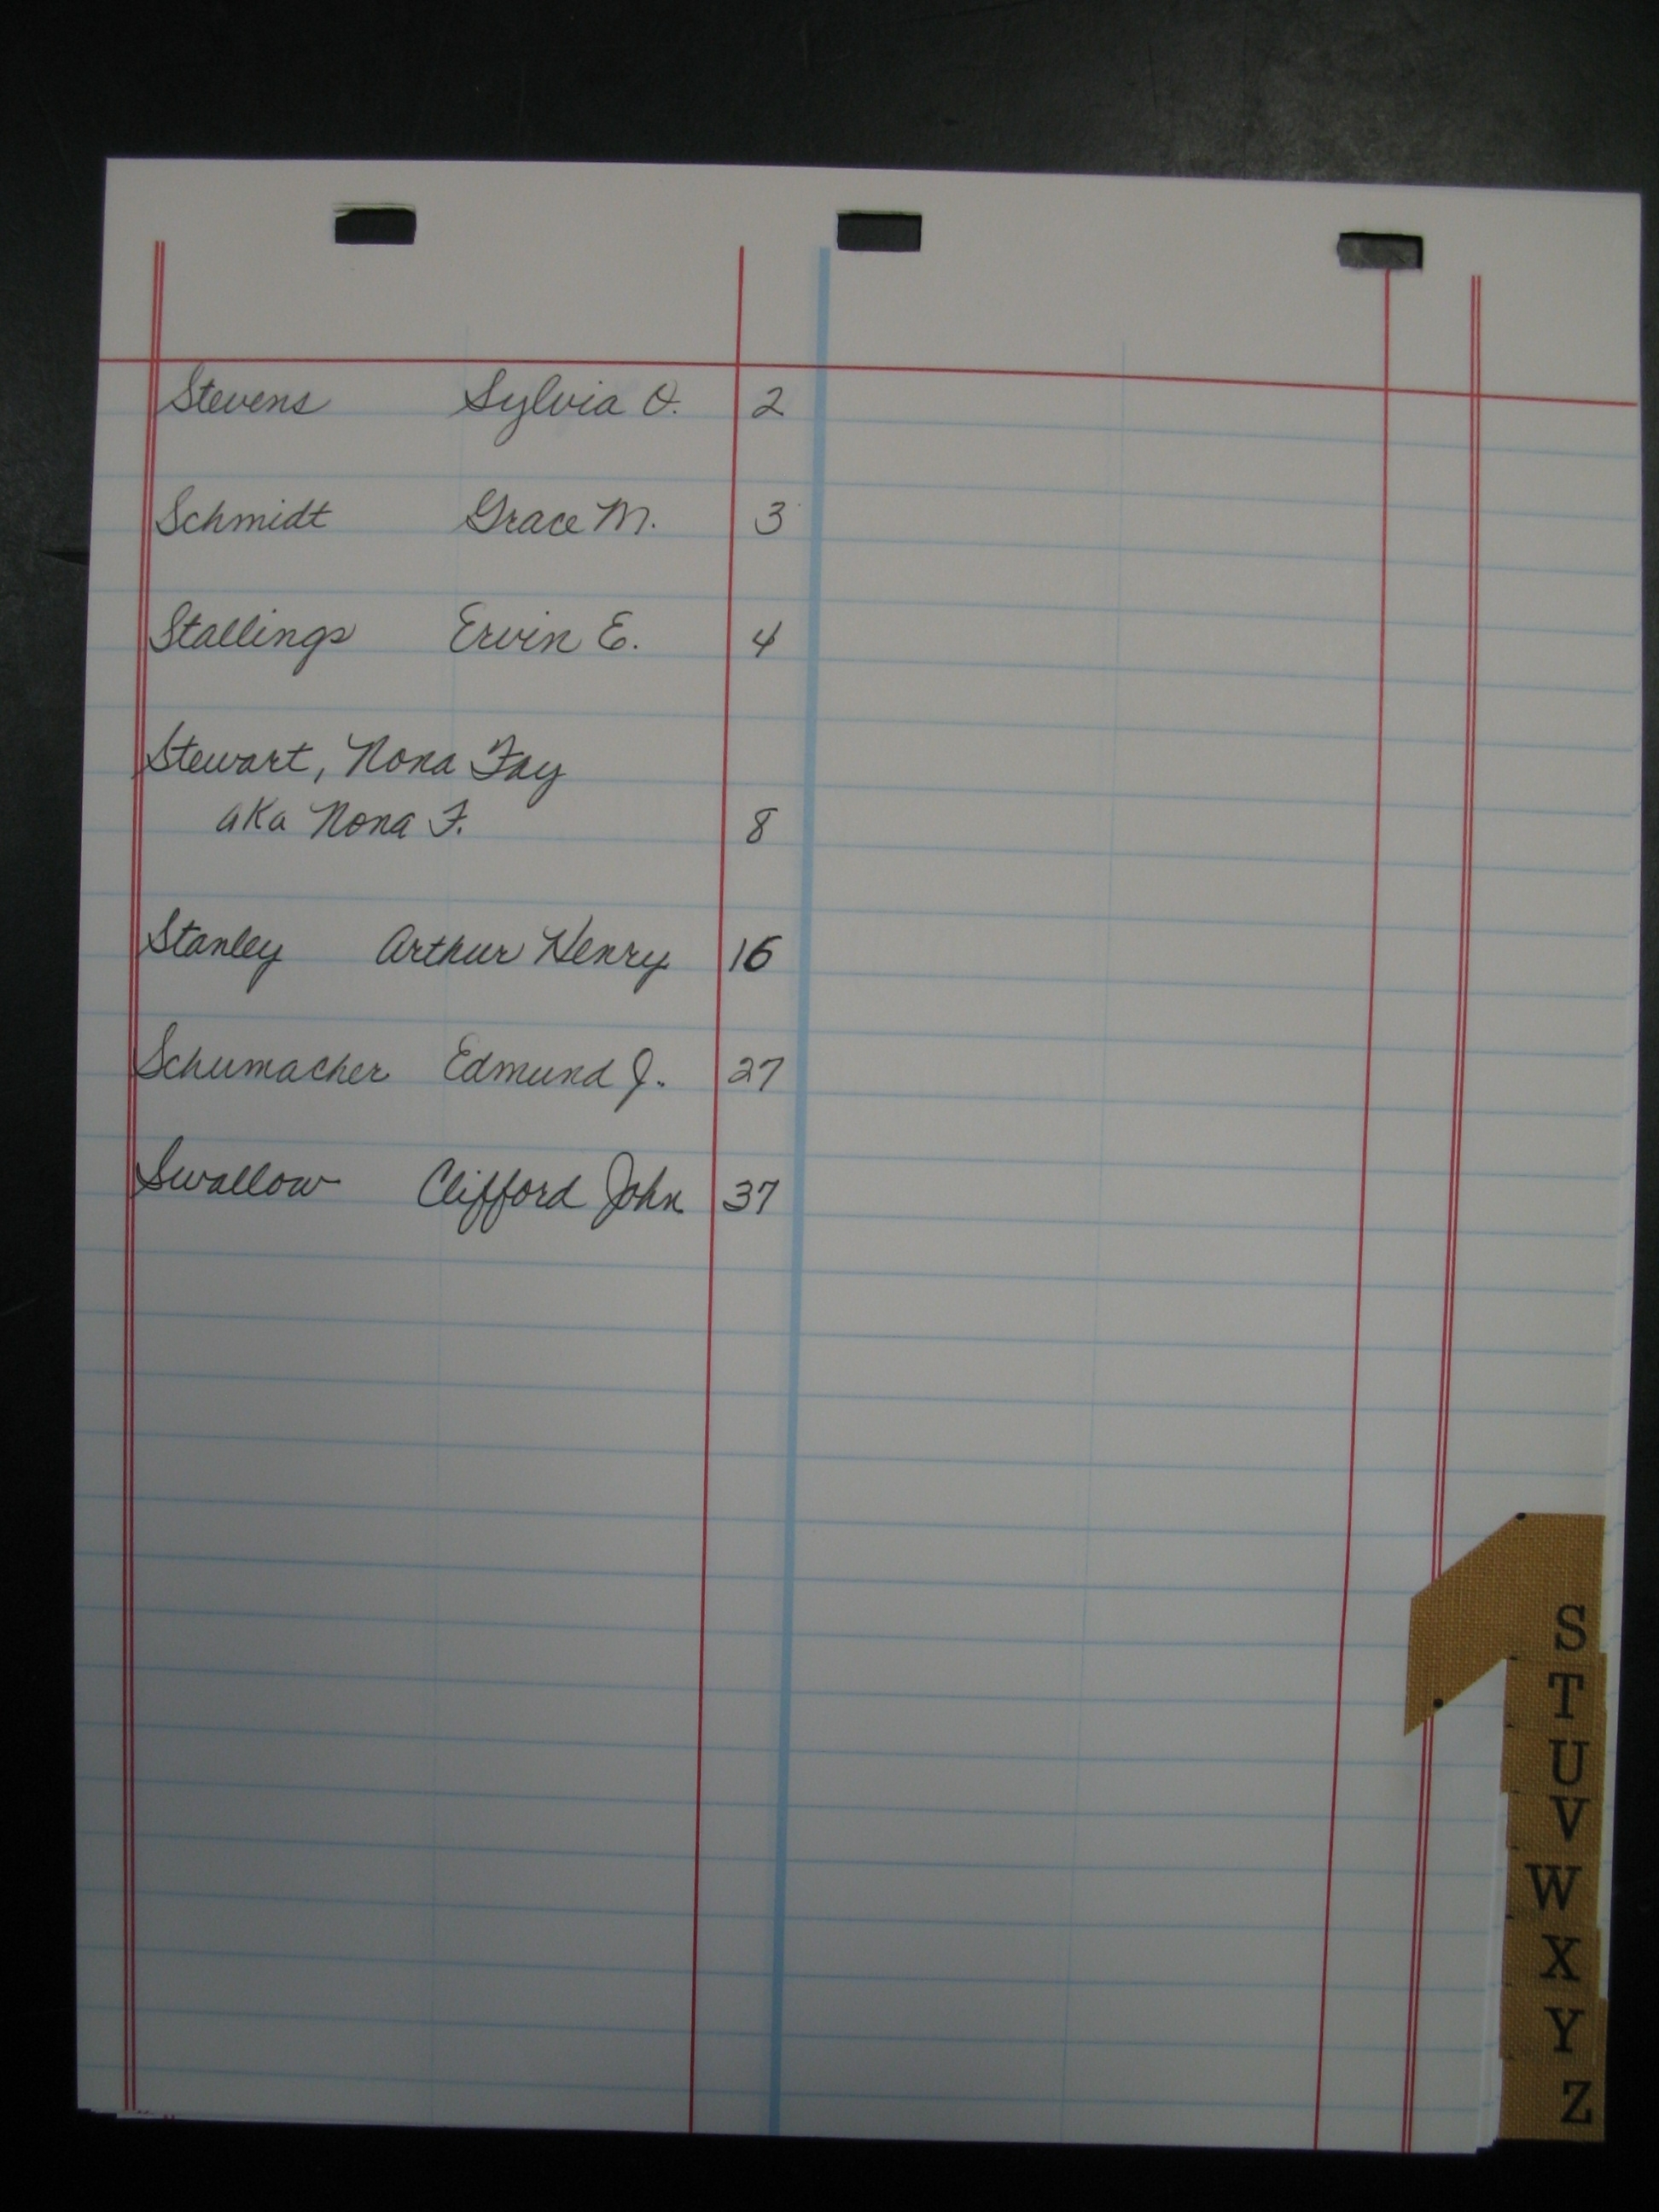 Stevens Sylvia O. 2
Schmidt Grace M. 3
Stallings Ervin E. 4
Stewart, Nona Fay
aka Nona F. 8
Stanley Arthur Henry 16
Schumacher Edmund J. 27
Swallow Clifford John 37
S
T
U
V
W
X
Y
Z